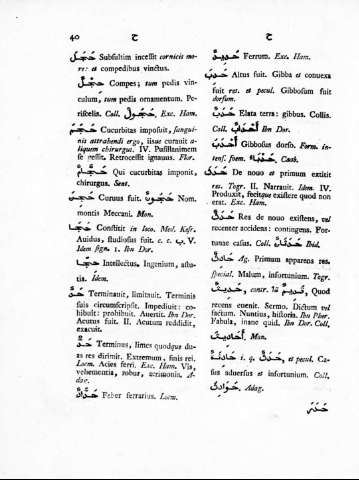 40 ح ح
حَجَلَ Subsultim incessit cornicis mo-
re: et compedibus vinctus.
حِجْلٌ Compes; tum pedis vin-
culum, tum pedis ornamentum. Pe-
riscelis. Coll. حُجُولٌ, Exc. Ham.
حَجَمَ Cucurbitas imposuit, sangui-
nis attrahendi ergo, iisue curauit a-
liquem chirurgus. IV. Pusillanimem
se gessit. Retrocessit ignauus. Flor.
حَجَّامٌ Qui cucurbitas imponit,
chirurgus. Sent.
حَجَنَ Curuus fuit. حَجُونٌ Nom.
montis Meccani. Mon.
حَجَا Constitit in loco. Mel. Kasr.
Auidus, studiosus fuit. c. c. ب. V.
Idem sign. 1. Ibn Dor.
حِجَا Intellectus, Ingenium, astu-
tia. Idem.
حَدَّ Terminauit, limitauit. Terminis
suis circumscripsit. Impediuit: co-
hibuit: prohibuit. Auertit. Ibn Dor.
Acutus fuit. II. Acutum reddidit,
exacuit.
حَدٌّ Terminus, limes quodque du-
as res dirimit. Extremum, finis rei.
Locm. Acies ferri. Exc. Ham. Vis,
vehementia, robur, acrimonia. A-
dag.
حَدَّادٌ Faber ferrarius. Locm.
حَدِيدٌ Ferrum. Exc. Ham.
حَدَبَ Altus fuit. Gibba et conuexa
fuit res. et pecul. Gibbosum fuit
dorsum.
حَدَبٌ Elata terra: gibbus. Collis.
Coll. أَحْدَابٌ Ibn Dor.
أَحْدَبُ Gibbosus dorso. Form. in-
tens. foem. حَدْبَاءُ. Caab.
حَدَثَ De nouo et primum extitit
res. Togr. II. Narrauit. Idem. IV.
Produxit, fecitque existere quod non
erat. Exc. Ham.
حَدَثٌ Res de nouo existens, vel
recenter accidens: contingens. For-
tunae casus. Coll. حَدَثَانٌ Ibid.
حَادِثٌ Ag. Primum apparens res.
special. Malum, infortunium. Togr.
حَدِيثٌ, contr. τῶ قَدِيمٌ, Quod
recens euenit. Sermo. Dictum vel
factum. Nuntius, historia. Ibn Phar.
Fabula, inane quid. Ibn Dor. Coll.
أَحَادِيثُ. Mon.
حَادِثَةٌ i. q. حَدَثٌ, et pecul. Ca-
sus aduersus et infortunium. Coll.
حَوَادِثُ. Adag.